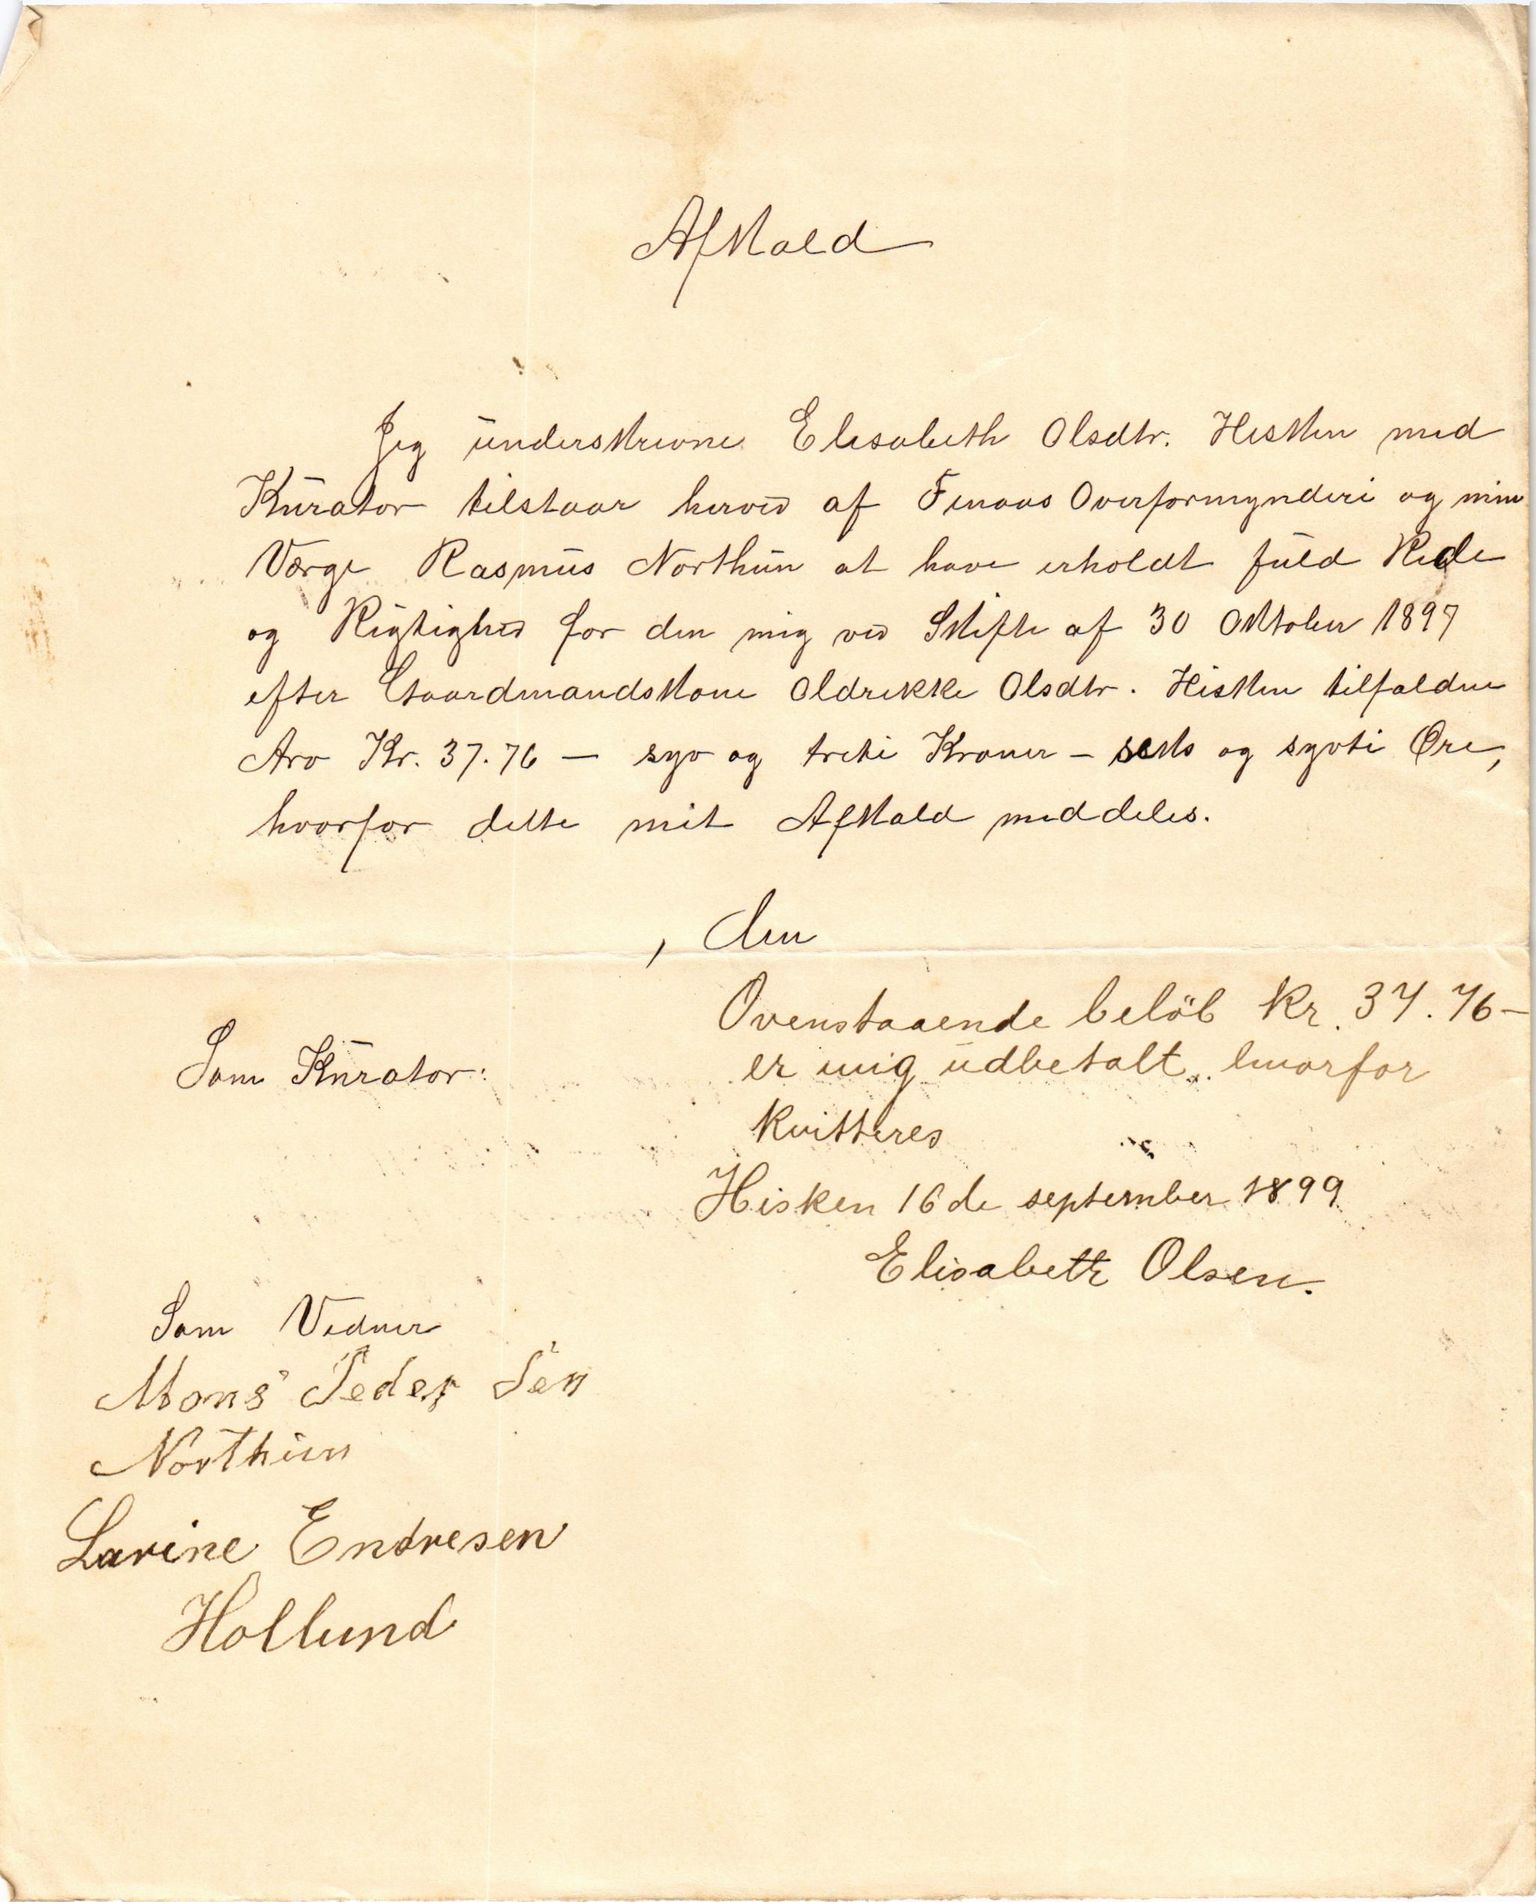 Afkald
Jeg underskrevne Elisabeth Olsdtr. Hisken med
Kurator tilstaar herved af Finaas Overformynderi og min
Værge Rasmus Northun at have erholdt fuld Rede
og Rigtighed for den mig ved Skifte af 30 Oktober 1897
efter Gaardmandskone Oldrikke Olsdtr. Hisken tilfaldne
Arv Kr. 37.76 — syv og treti Kroner — seks og syvti Øre,
hvorfor dette mit Afkald meddeles.
, den
Ovenstaaende beløb Kr. 37.76 —
er mig udbetalt, hvorfor
kvitteres
Hisken 16de september 1899
Elisabeth Olsen.
Som Kurator:
Som Vidner
Mons Peder Sen
Northun
Larine Endresen
Hollund